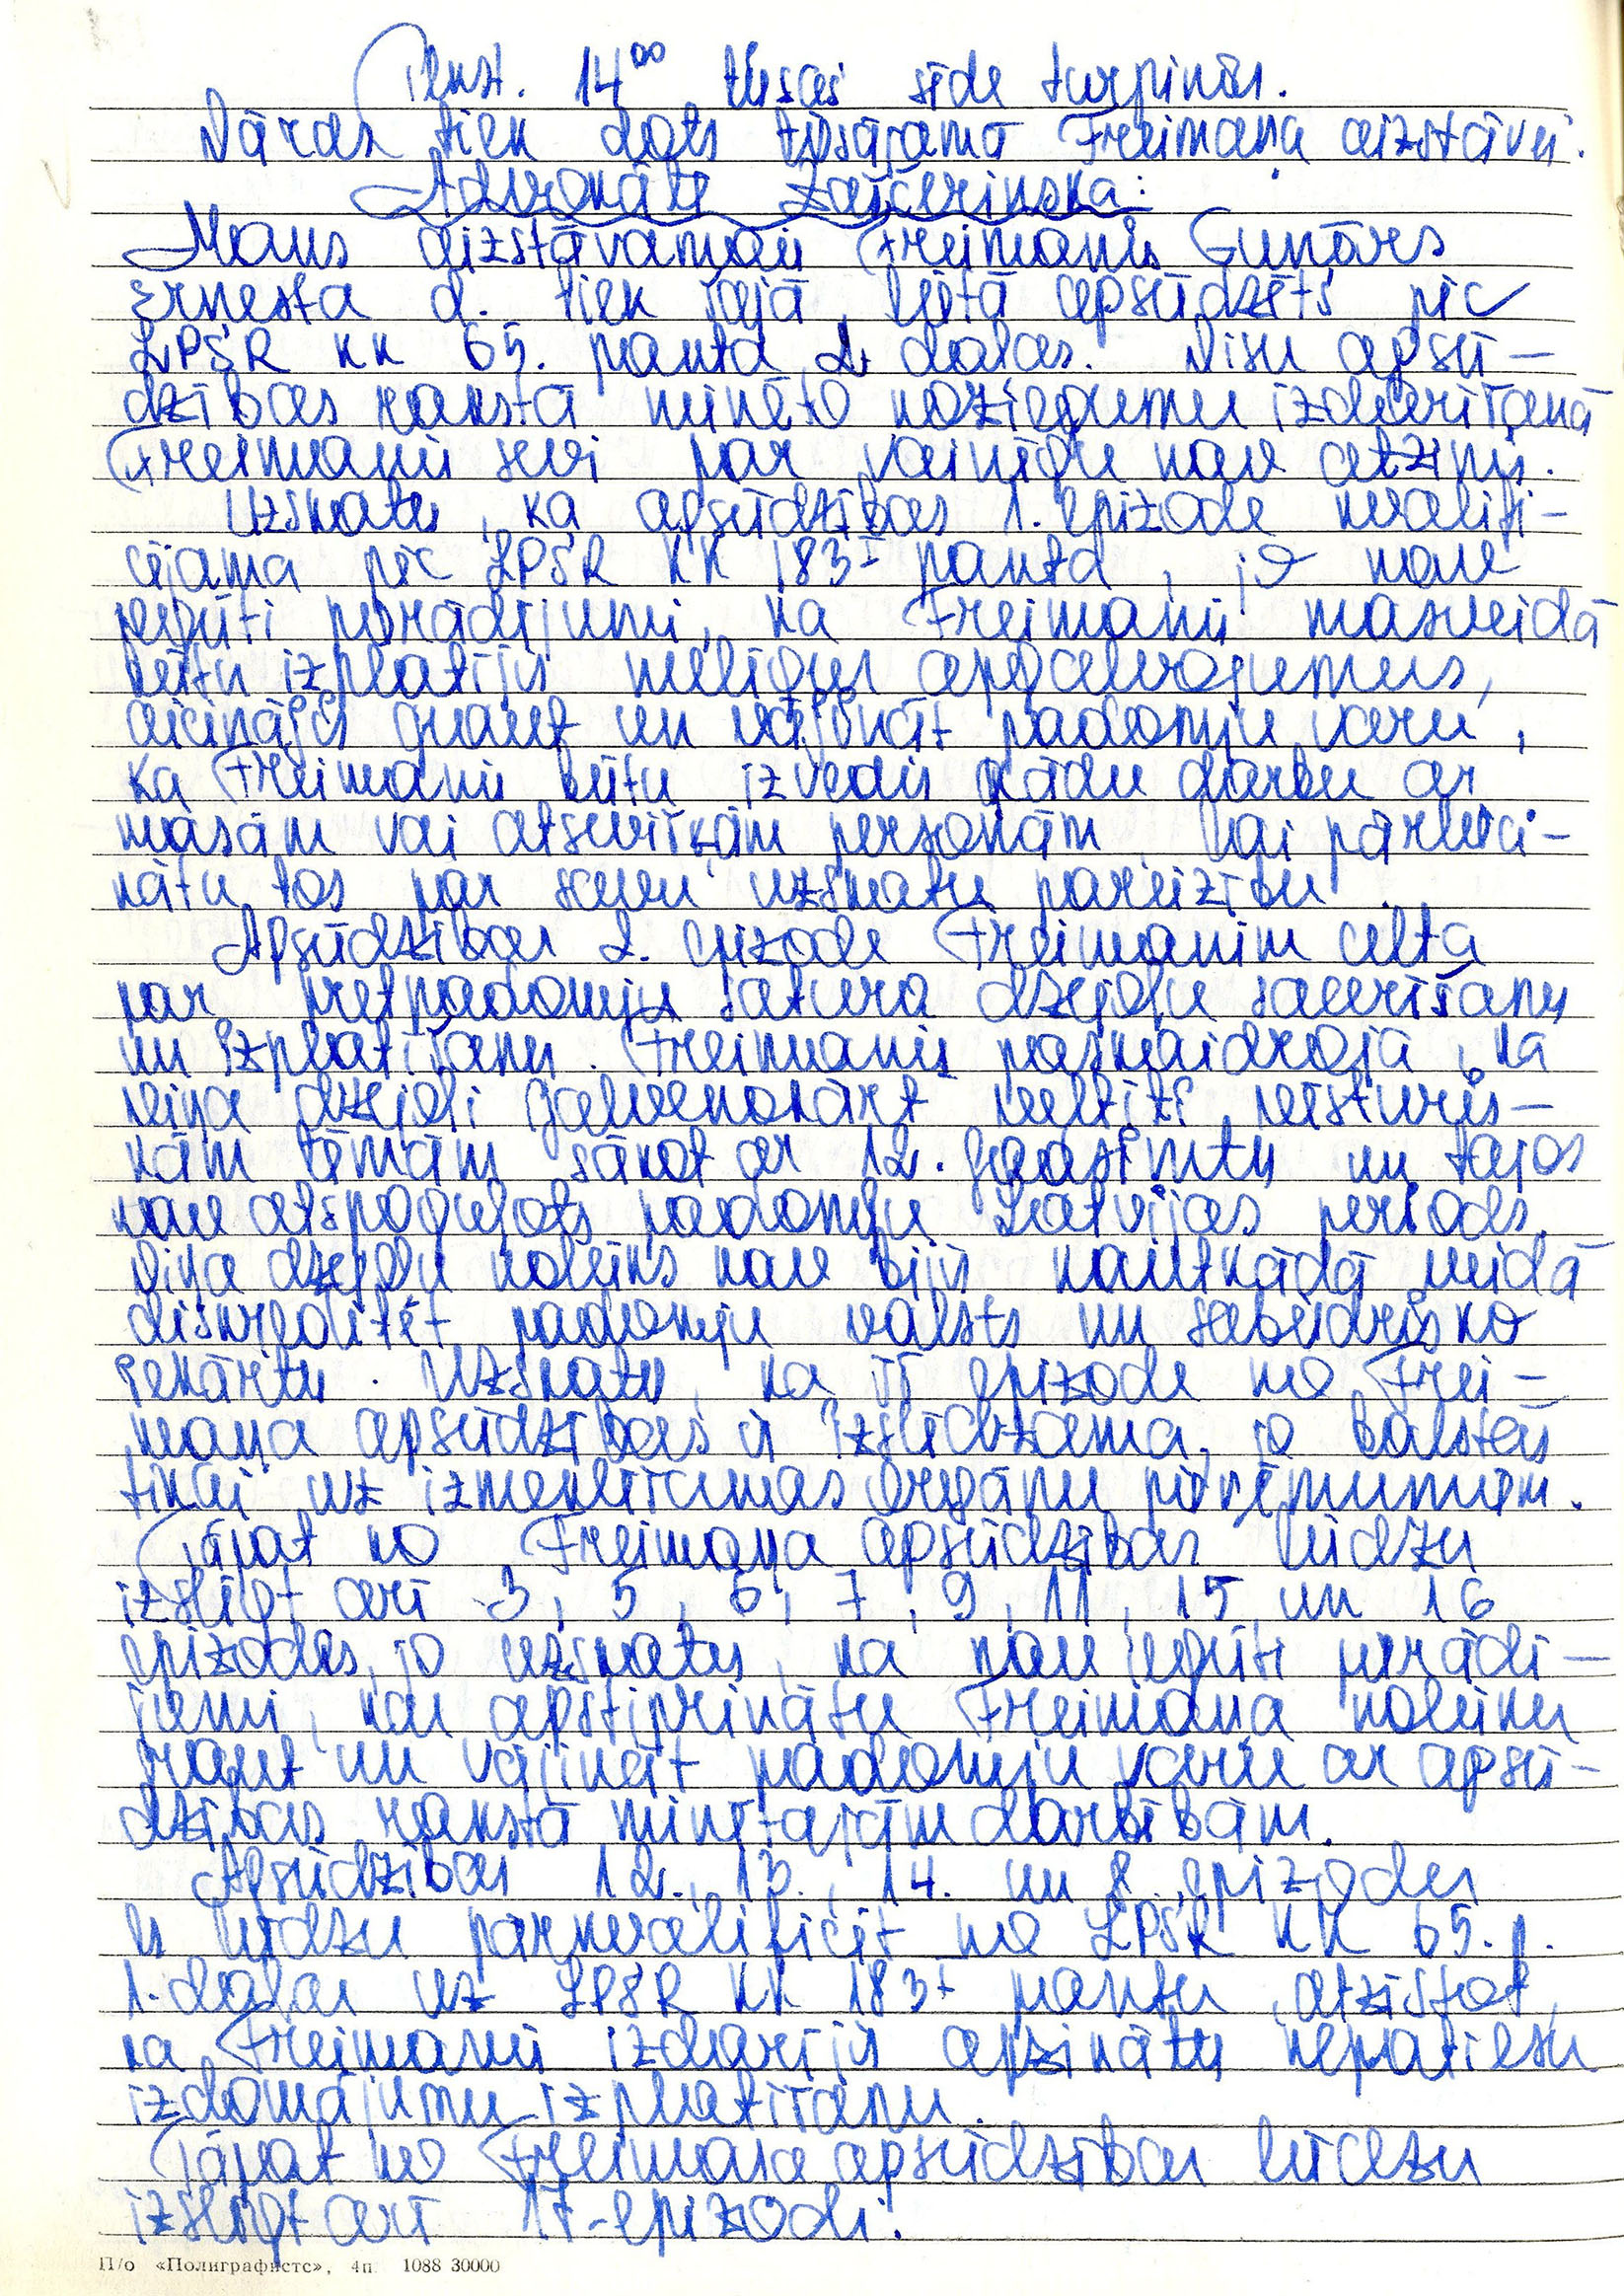 Plkst. 14⁰⁰ tiesas sēde turpinās.
Vārds tiek dots tiesājamā Freimaņa aizstāvei.
Advokāte Zaičerinska:
Mans aizstāvamais Freimanis Gunārs
Ernesta d. tiek šajā lietā apsūdzēts pēc
LPSR KK 65. panta 2. daļas. Visu apsū-
dzības rakstā minēto noziegumu izdarīšanā
Freimanis sevi par vainīgu nav atzinis.
Uzskatu, ka apsūdzības 1. epizode kvalifi-
cējama pēc LPSR KK 183¹ panta, jo nav
iegūti pierādījumi, ka Freimanis masveidā
būtu izplatījis melīgus apgalvojumus,
aicinājis graut un vājināt padomju varu,
ka Freimanis būtu izvedis kādu darbu ar
masām vai atsevišķām personām vai pārlieci-
nātu tos par savu uzskatu pareizību.
Apsūdzības 2. epizode Freimanim celta
par pretpadomju satura dzejoļu sacerēšanu
un izplatīšanu. Freimanis paskaidroja, ka
viņa dzejoļi galvenokārt veltīti vēsturis-
kām tēmām sākot ar 12. gadsimtu un tajos
nav atspoguļots padomju Latvijas periods.
Viņa dzejoļu nolūks nav bijis kautkādā veidā
diskreditēt padomju valsts un sabiedrisko
iekārtu. Uzskatu, ka šī epizode no Frei-
maņa apsūdzības ir izslēdzama, jo balstās
tikai uz izmeklēšanas orgānu pieņēmumiem.
Tāpat no Freimaņa apsūdzības lūdzu
izslēgt arī 3, 5, 6, 7, 9, 11, 15 un 16
epizodes, jo uzskatu, ka nav iegūti pierādī-
jumi, kas apstiprinātu Freimaņa nolūku
graut un vājināt padomju varu ar apsū-
dzības rakstā minētajām darbībām.
Apsūdzības 12., 13., 14. un 8. epizodes
es lūdzu pārkvalificēt no LPSR KK 65. p.
1. daļas uz LPSR KK 183¹ pantu, atzīstot,
ka Freimanis izdarījis apzinātu nepatiesu
izdomājumu izplatīšanu.
Tāpat no Freimaņa apsūdzības lūdzu
izslēgt arī 17. epizodi.
П/о «Полиграфистс», 4п. 1088 30000